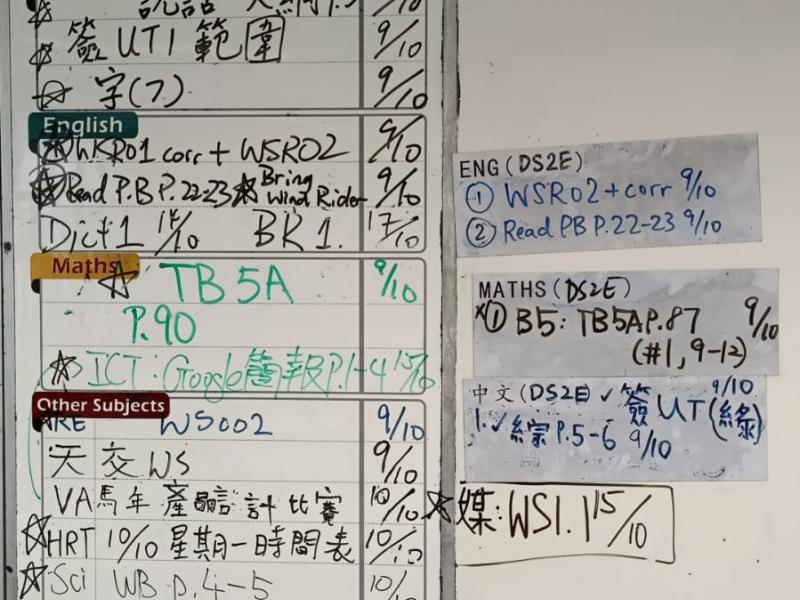 9/10
簽 UT1 範圍 9/10
字(7) 9/10
English
WKR01 corr + WSR02 9/10
Read P.B P.22-23 Bring Wind Rider 9/10
Dict 1 14/10 BK 1. 17/10
Maths
TB 5A 9/10
P.90
ICT: Google簡報P.1-4 15/10
Other Subjects
RE WS002 9/10
天交WS 9/10
VA 馬年產品設計比賽 10/10
HRT 10/10 星期一時間表 10/10
Sci WB p.4-5 10/
ENG (DS2E)
① WSR02 + corr 9/10
② Read PB P.22-23 9/10
MATHS (DS2E)
① B5: TB5A P.87 9/10
(#1, 9-12)
中文(DS2E) ✓簽 UT(綠) 9/10
1. ✓ 綜 P.5-6 9/10
媒: WS1.1 15/10